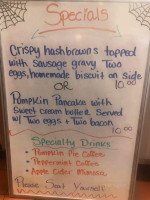 Specials
Crispy hashbrowns topped
with Sausage gravy Two
eggs, homemade biscuit on side
OR 10.00
Pumpkin Pancake with
Sweet cream butter Served
w/ Two eggs + Two bacon
10.00
Specialty Drinks
• Pumpkin Pie Coffee
• Peppermint Coffee
• Apple Cider Mimosa
Please Seat Yourself